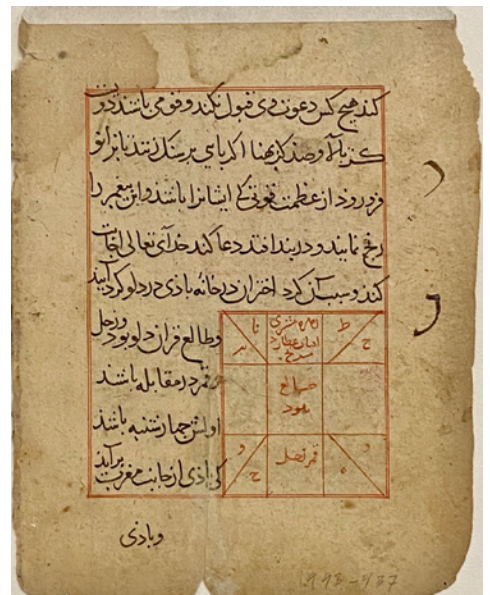 کند هیچ کس دعوت وی قبول نکند و قومی باشند دون
کز بالا و صد کز بهنا اکر بای بر سنک زنند تا بزانو
فرو رود از عظمت قوتی کی ایشانرا باشد و این بیغمبر را
رنج نمایند و در بند افتد دعا کند خدای تعالی اجابت
کند و سبب آن کرد اختران در خانه بادی در دلو کرد آیند
و طالع قران دلو بود و زحل
و قمر در مقابله باشند
اولش جهارشنبه باشد
کی بادی از جانب مغرب برآید
ط
ح
مشتری
عطارد
یا
طالع
قمر زحل
و
ح
ه
وبادی